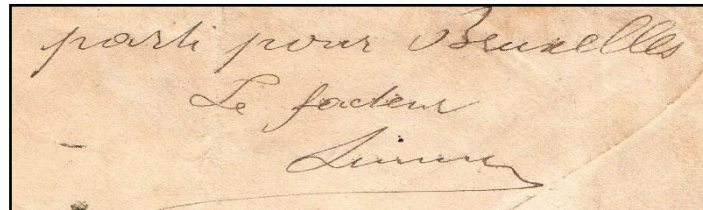 parti pour Bruxelles
Le facteur